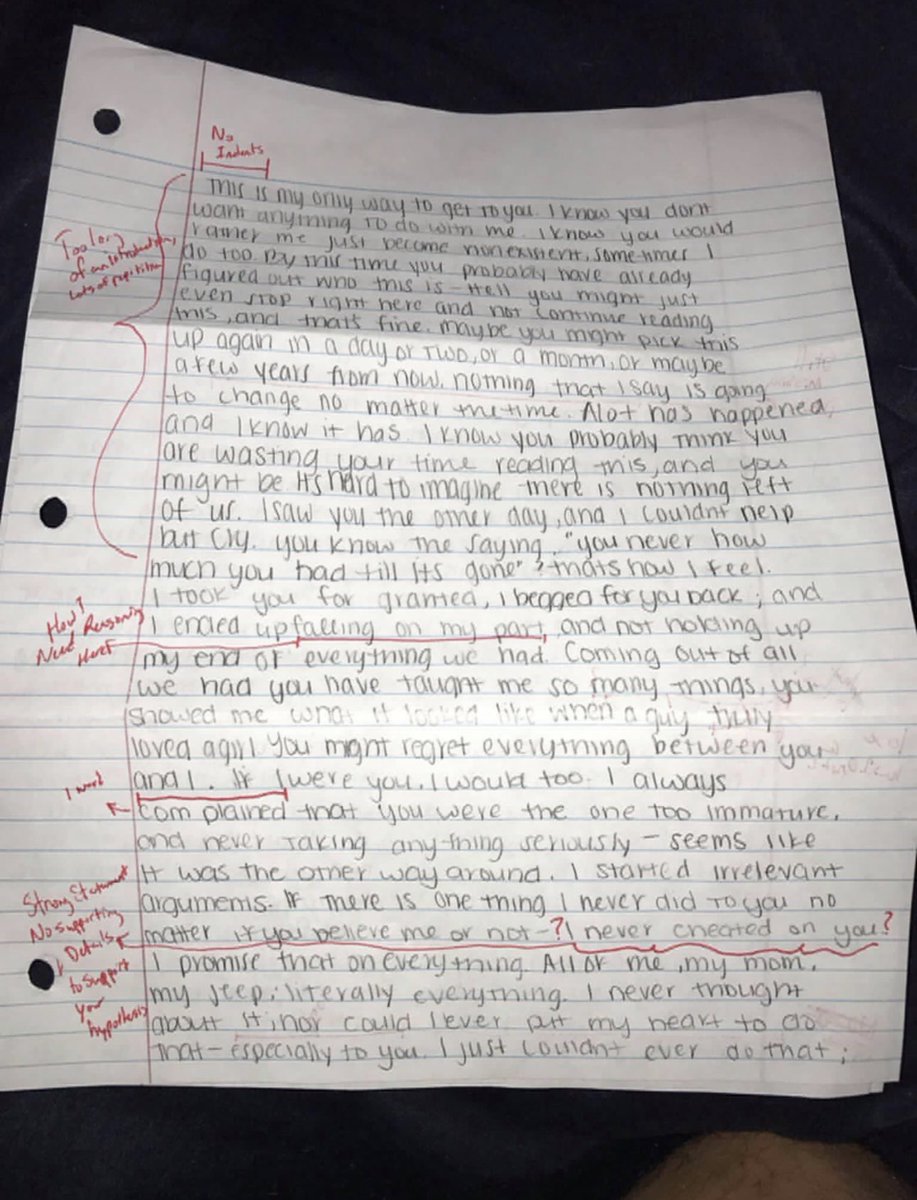 No
Indents
This is my only way to get to you. I know you dont
want anything to do with me. I know you would
rather me just become nonexistent, sometimes I
do too. By this time you probably have already
figured out who this is - Hell you might just
even stop right here and not continue reading
this, and thats fine. maybe you might pick this
up again in a day or two, or a month, or maybe
a few years from now. nothing that I say is going
to change no matter the time. Alot has happened,
and I know it has. I know you probably think you
are wasting your time reading this, and you
might be. It's hard to imagine there is nothing left
of us. I saw you the other day, and I couldnt help
but cry. you know the saying, "you never how
much you had till its gone"? thats how I feel.
I took you for granted, I begged for you back; and
I ended up falling on my part, and not holding up
my end of everything we had. Coming out of all
we had you have taught me so many things, you
showed me what it looked like when a guy fully
loved a girl. You might regret everything between you
and I. If I were you, I would too. I always
complained that you were the one too immature,
and never taking anything seriously - seems like
it was the other way around. I started irrelevant
arguments. If there is one thing I never did to you no
matter if you believe me or not-? I never cheated on you?
I promise that on everything. All of me, my mom,
my jeep; literally everything. I never thought
about it; nor could I ever put my heart to do
that - especially to you. I just couldnt ever do that;
Too long
of an Introduction,
Lots of repetition
How?
Need Reasoning
Here!
1 word
Strong Statement
No supporting
Details
to support
your
hypothesis